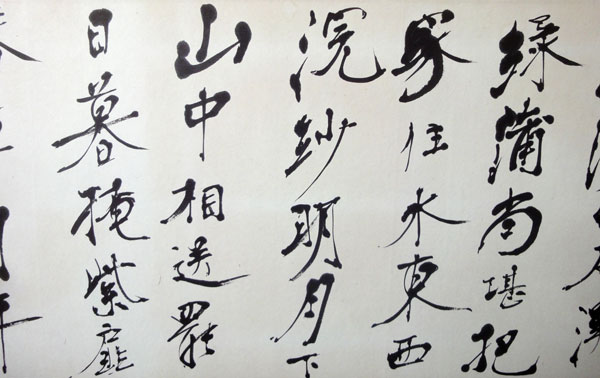 綠蒲尚堪把
家住水東西
浣紗明月下
山中相送罷
日暮掩紫扉